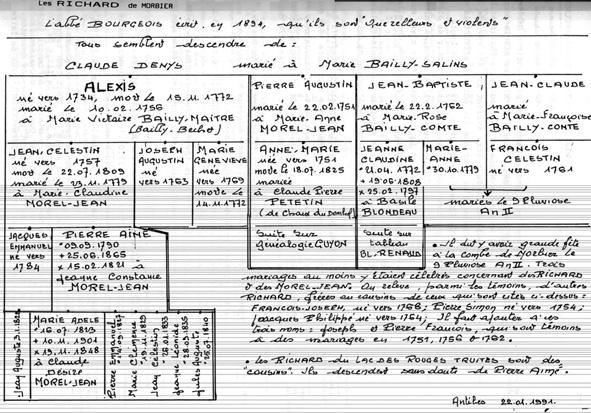 Les RICHARD de MORBIER
L'abbé BOURGEOIS écrit, en 1894, qu'ils sont "querelleurs et violents"
Tous semblent descendre de :
CLAUDE DENYS marié à Marie BAILLY-SALINS
ALEXIS
né vers 1734, mort le 15.11.1772
marié le 10.02.1756
à Marie Victoire BAILLY-MAITRE
(Bailly-Bechet)
PIERRE AUGUSTIN
marié le 22.02.1751
à Marie-Anne
MOREL-JEAN
JEAN-BAPTISTE
marié le 22.2.1762
à Marie-Rose
BAILLY-COMTE
JEAN-CLAUDE
marié
à Marie-Françoise
BAILLY-COMTE
JEAN-CELESTIN
né vers 1757
mort le 22.07.1809
marié le 23.11.1779
à Marie-Claudine
MOREL-JEAN
JOSEPH
AUGUSTIN
né
vers 1763
MARIE
GENEVIEVE
née
vers 1769
morte le
14.11.1772
ANNE-MARIE
née vers 1751
mort le 18.07.1825
mariée
à Claude Pierre
PETETIN
(de Chaux du Dombief)
JEANNE
CLAUDINE
°21.04.1772
+ 19.06.1808
x 25.02.1797
à Basile
BLONDEAU
MARIE-
ANNE
°30.10.1779
FRANCOIS
CELESTIN
né vers 1761
mariés le 9 Pluviose
An II
JACQUES
EMMANUEL
né vers
1784
PIERRE AIMÉ
°09.09.1790
+ 25.06.1865
x 15.02.1821 à
Jeanne Constance
MOREL-JEAN
Suite sur
généalogie GUYON
Suite sur
tableau
BL-RENAUD
• Il dut y avoir grande fête
à la Combe de Morbier le
9 Pluviose An II. Trois
mariages au moins y étaient célébrés concernant des RICHARD
et des MOREL-JEAN. On relève, parmi les témoins, d'autres
RICHARD, frères ou cousins de ceux qui sont cités ci-dessus :
FRANCOIS-JOSEPH, né vers 1766; Pierre Simon né vers 1754;
Jacques Philippe né vers 1764. Il faut ajouter à ces
trois noms : Joseph et Pierre François, qui sont témoins
à des mariages en 1751, 1756 & 1762.
• Les RICHARD du LAC DES ROUGES TRUITES sont des
"cousins". Ils descendent sans doute de Pierre Aimé.
MARIE ADELE
°16.07.1823
+ 10.11.1901
x 19.11.1848
à Claude
Désiré
MOREL-JEAN
Pierre Emmanuel
Marie Clemence
Jean Célestin
Jeanne Léonide
Jules Auguste
Antibes 22.01.1991.